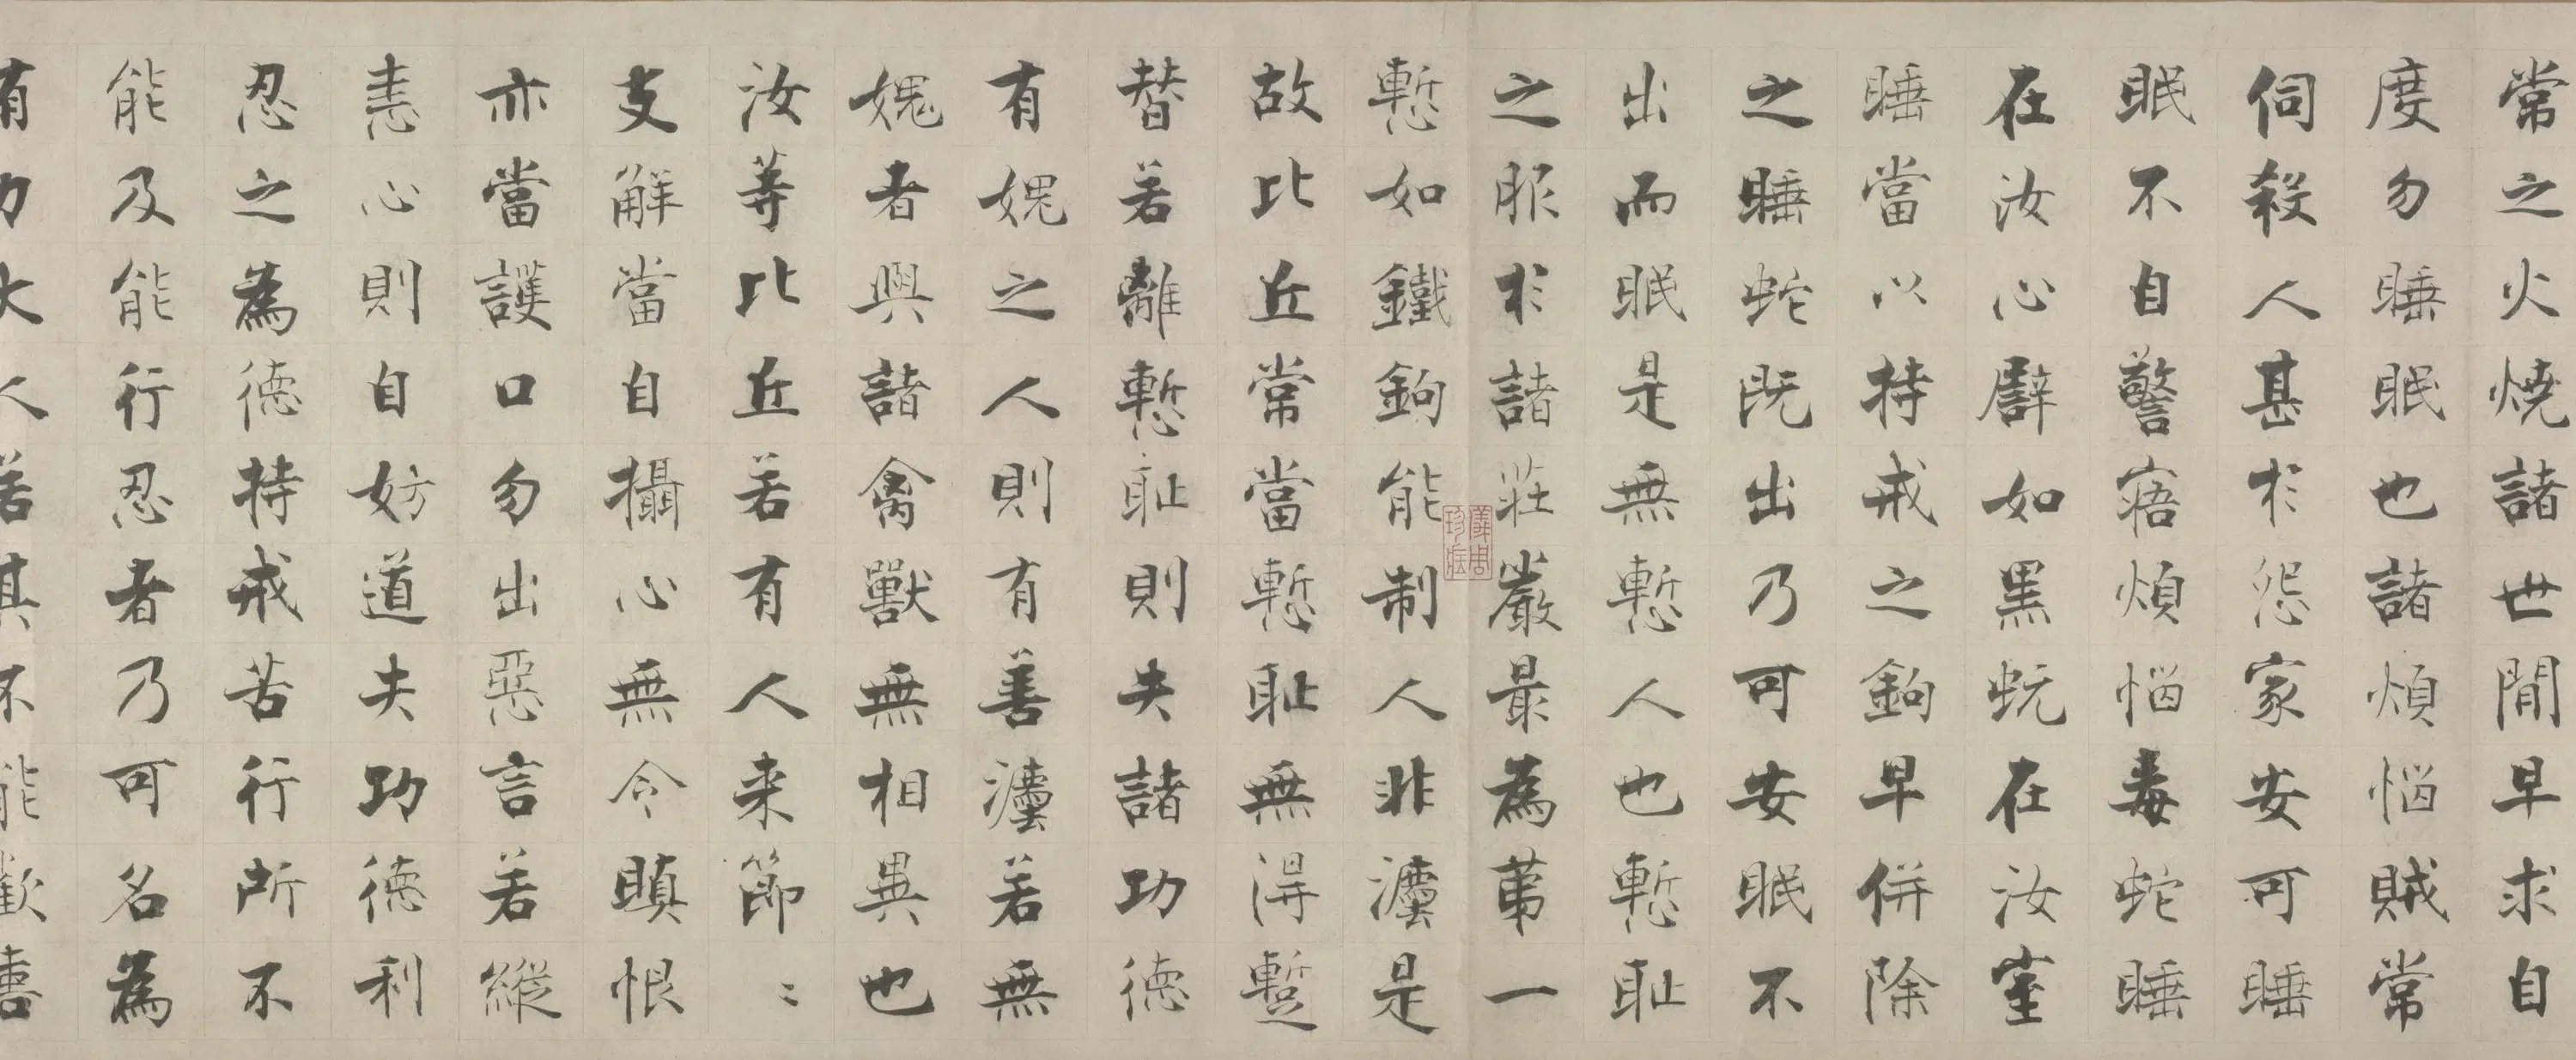 常之火燒諸世閒早求自
度勿睡眠也諸煩惱賊常
伺殺人甚於怨家安可睡
眠不自警寤煩惱毒蛇睡
在汝心譬如黑蚖在汝室
睡當以持戒之鉤早併除
之睡蛇既出乃可安眠不
出而眠是無慙人也慙耻
之服於諸莊嚴最為苐一
慙如鐵鉤能制人非灋是
故比丘常當慙耻無得蹔
替若離慙耻則失諸功德
有媿之人則有善灋若無
媿者與諸禽獸無相異也
汝等比丘若有人来節〻
支解當自攝心無令瞋恨
亦當護口勿出惡言若縱
恚心則自妨道失功德利
忍之為德持戒苦行所不
能及能行忍者乃可名為
有力大人若其不能歡喜